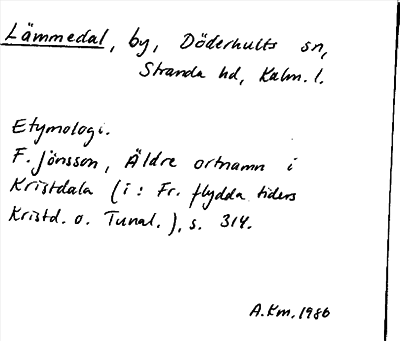 Lämmedal, by, Döderhults sn,
Stranda hd, Kalm. l.
Etymologi.
F. Jönsson, Äldre ortnamn i
Kristdala (i: Fr. flydda tiders
Kristd. o. Tunal.), s. 314.
A.Km. 1986